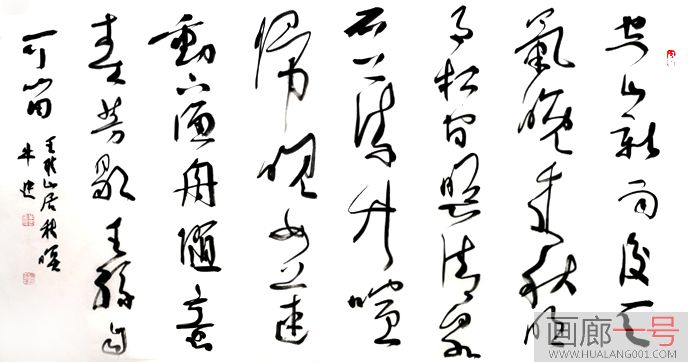 空山新雨後天
氣晚來秋明
月松間照清泉
石上流竹喧
歸浣女蓮
動下漁舟隨意
春芳歇王孫自
可留
王維山居秋暝
画廊一号
WWW.HUALANG001.COM